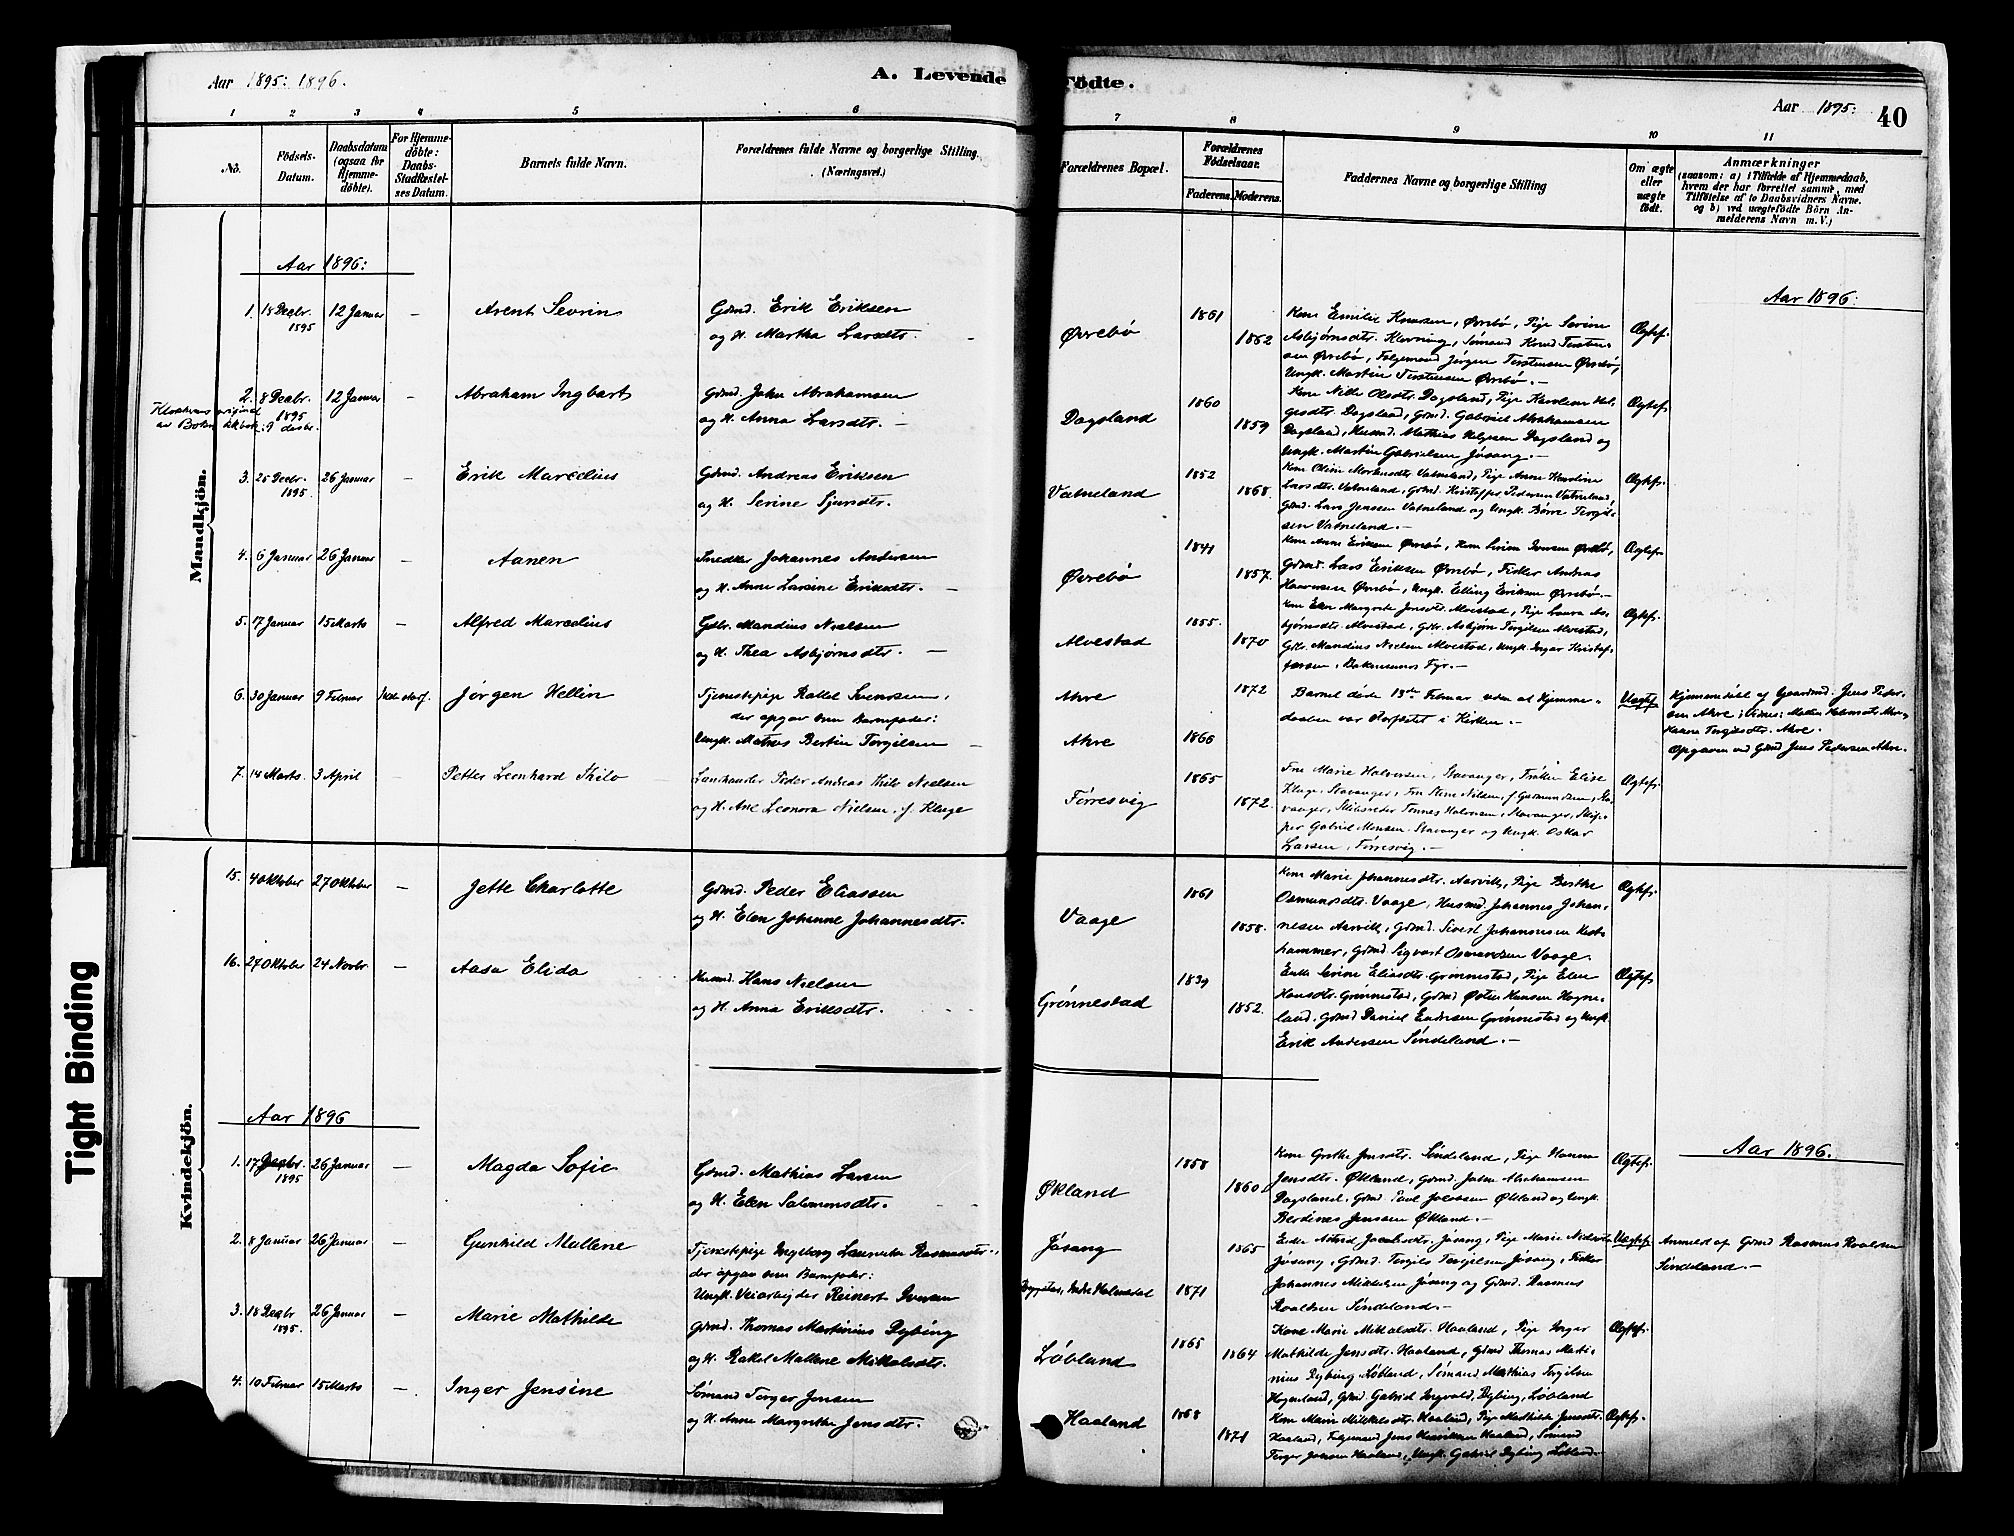 Aar 1895: 1896.
A. Levende Födte.
Aar 1895:
40
1 2 3 4 5 6 7 8 9 10 11
No.
Födsels-Datum.
Daabsdatum (ogsaa for Hjemme-döbte).
For Hjemme-döbte: Daabs-Stadfæstel-ses Datum.
Barnets fulde Navn.
Forældrenes fulde Navne og borgerlige Stilling. (Næringsvei.)
Forældrenes Bopæl.
Forældrenes Födselsaar.
Faderens. Moderens.
Faddernes Navne og borgerlige Stilling
Om ægte eller uægte födt.
Anmærkninger
(saasom: a) i Tilfælde af Hjemmedaab,
hvem der har forrettet samme, med
Tilföielse af to Daabsvidners Navne.
og b) ved uægtefödte Börn An-
melderens Navn m. V.)
Mandkjön.
Aar 1896:
Aar 1896:
1. 18 Decbr. 1895 12 Januar – Arent Sevrin
Gdmd. Erik Eriksen
og H. Martha Larsdtr.
Øvrebö 1861 1862
Kone Emilie Knusen, Øvrebö, Pige Serine
Asbjørnsdtr. Klovning, Sømand Knud Tersten-
sen Øvrebö, Følgemand Jørgen Terstensen Øvrebö,
Ungk. Martin Terstensen Øvrebö. –
Ægtef.
2. 8 Decbr. 1895 12 Januar – Abraham Ingbart
Gdmd. John Abrahamsen
og H. Anna Larsdtr. –
Dagsland 1860 1859
Kone Nille Olsdtr. Dagsland, Pige Karoline Hel-
gesdtr. Dagsland, Gdmd. Gabriel Abrahamsen
Dagsland, Husmd. Mathias Helgesen Dagsland og
Ungk. Martin Gabrielsen Jösang. –
Ægtef.
3. 25 Decbr. 1895. 26 Januar – Erik Marcelius
Gdmd. Andreas Eriksen
og H. Serine Sjursdtr.
Vatneland 1852 1868.
Kone Oline Mortensdtr. Vatneland, Pige Anne Karoline
Larsdtr. Vatneland, Gdmd. Kristoffer Pedersen Vatneland,
Gdmd. Lars Jenssen Vatneland og Ungk. Børre Tergil-
sen Vatneland. –
Ægtef.
4. 6 Januar 26 Januar – Aanen
Snedker Johannes Andersen
og H. Anne Larsine Eriksdtr. –
Øvrebö 1841 1857.
Gdmd. Lars Eriksen Øvrebö, Fisker Andreas
Ungk. Elling Eriksen Øvrebö. –
Ægtef.
5. 17 Januar 15 Marts – Alfred Marcelius
Gdbr. Mandius Nielsen
og H. Thea Asbjørnsdtr. –
Alvestad 1855. 1870
Kone Elen Margrete Jensdtr. Alvestad, Pige Laura As-
bjørnsdtr. Alvestad, Gdbr. Asbjørn Tergilsen Alvestad,
Gdbr. Mandius Nielsen Alvestad, Ungk. Inger Kristof-
fersen, Fyr. –
Ægtef.
6. 30 Januar 9 Februar Jørgen Hellin
Tjenestepige Rakel Svensen,
der opgav som Barnefader:
Ungk. Mathis Bertin Torgilsen –
Ahre 1872
Ahre 1866
Barnet döde 13de Februar uden at Hjemme-
daaben var stadfæstet i Kirken. –
Uægtef.
Hjemmedöbt af Gaardmd. Jens Peder-
sen Ahre;
Opgaven ved Gdmd. Jens Pedersen Ahre.
7. 14 Marts. 3 April – Petter Leonhard Thilo
Landhandler Peder Andreas Thilo Nielsen
og H. Ane Leonora Nielsen f. Kluge
Førresvig 1865 1872.
Fru Marie Halvorsen, Stavanger, Frøken Elise
Kluge, Stavanger, Fru Stine Nilsen, f. Gudmundsen, Sta-
vanger, Skibsreder Tönnes Halvorsen, Stavanger, Skip-
per Gabriel Monsen. Stavanger og Ungk. Oskar
Larsen, Førresvig. –
Ægtef.
Kvindekjön.
15. 4 Oktober 27 Oktober – Jette Charlotte
Gdmd. Peder Eliassen
og H. Elen Johanne Johannesdtr.
Vaage 1861 1858.
Kone Marie Johannesdtr. Aarvik, Pige Berthe
Osmundsdtr. Vaage, Husmd. Johannes Johan-
nesen Aarvik, Gdmd. Sivert Johannesen
hammer, Gdmd. Sigvart Osmundsen Vaage.
Ægtef.
16. 27 Oktober 24 Novbr. – Aasa Elida
Husmd. Hans Nielsen
og H. Anna Eriksdtr.
Grønnestad 1839 1852.
Enke Serine Eliasdtr. Grønnestad, Pige Elen
Hansdtr. Grønnestad, Gdmd Østen Hansen Hogne-
land, Gdmd Daniel Endresen Grønnestad og Ungk.
Erik Andersen Søndeland. –
Ægtef.
Aar 1896
Aar 1896.
1. 17 Decbr. 1895 26 Januar – Magda Sofie
Gdmd. Mathias Larsen
og H. Elen Salomonsdtr.
Økland 1858 1860
Kone Grethe Jensdtr. Søndeland, Pige Hanna
Jensdtr. Økland, Gdmd. John Abrahamsen
Dagsland, Gdmd. Paul Jacobsen Økland og Ungk.
Berdines Jenssen Økland. –
Ægtef.
2. 8 Januar 26 Januar – Gunhild Mallene
Tjenestepige Ingeborg Laurentse Rasmusdtr.
der opgav som Barnefader:
Ungk. Veiarbejder Reinert Iversen
Jösang 1865
1871
Enke Astrid Jacobsdtr. Jösang, Pige Marie
Jösang, Gdmd. Tergils Tergilsen Jösang, Fisker
Johannes Mikkelsen Jösang og Gdmd. Rasmus
Roaldsen Søndeland. –
Uægtef.
Anmeld. af Gdmd Rasmus Roaldsen
Søndeland. –
3. 18 Decbr 1895. 26 Januar – Marie Mathilde
Gdmd. Thomas Martinius Dybing
og H. Rakel Mallene Mikalsdtr.
Løbland 1865 1864
Kone Marie Mikkalsdtr. Haaland, Pige Inger
Mathilde Jensdtr. Haaland, Gdmd Thomas Marti-
nius Dybing Løbland, Sømand Mathias Torgilsen
Gdmd. Gabriel Ingvald, Dybing, Løbland
Ægtef.
4. 10 Februar 15 Marts – Inger Jensine
Sømand Torger Jensen
og H. Anne Margrethe Jensdtr.
Haaland 1868 1871
Kone Marie Mikkalsdtr. Haaland, Pige Mathilde Jensdtr.
Haaland, Følgemand Jens Henriksen Haaland, Sømand
Torger Jonsen Haaland, Ungk. Gabriel Dybing Løbland.
Ægtef.
Tight Binding